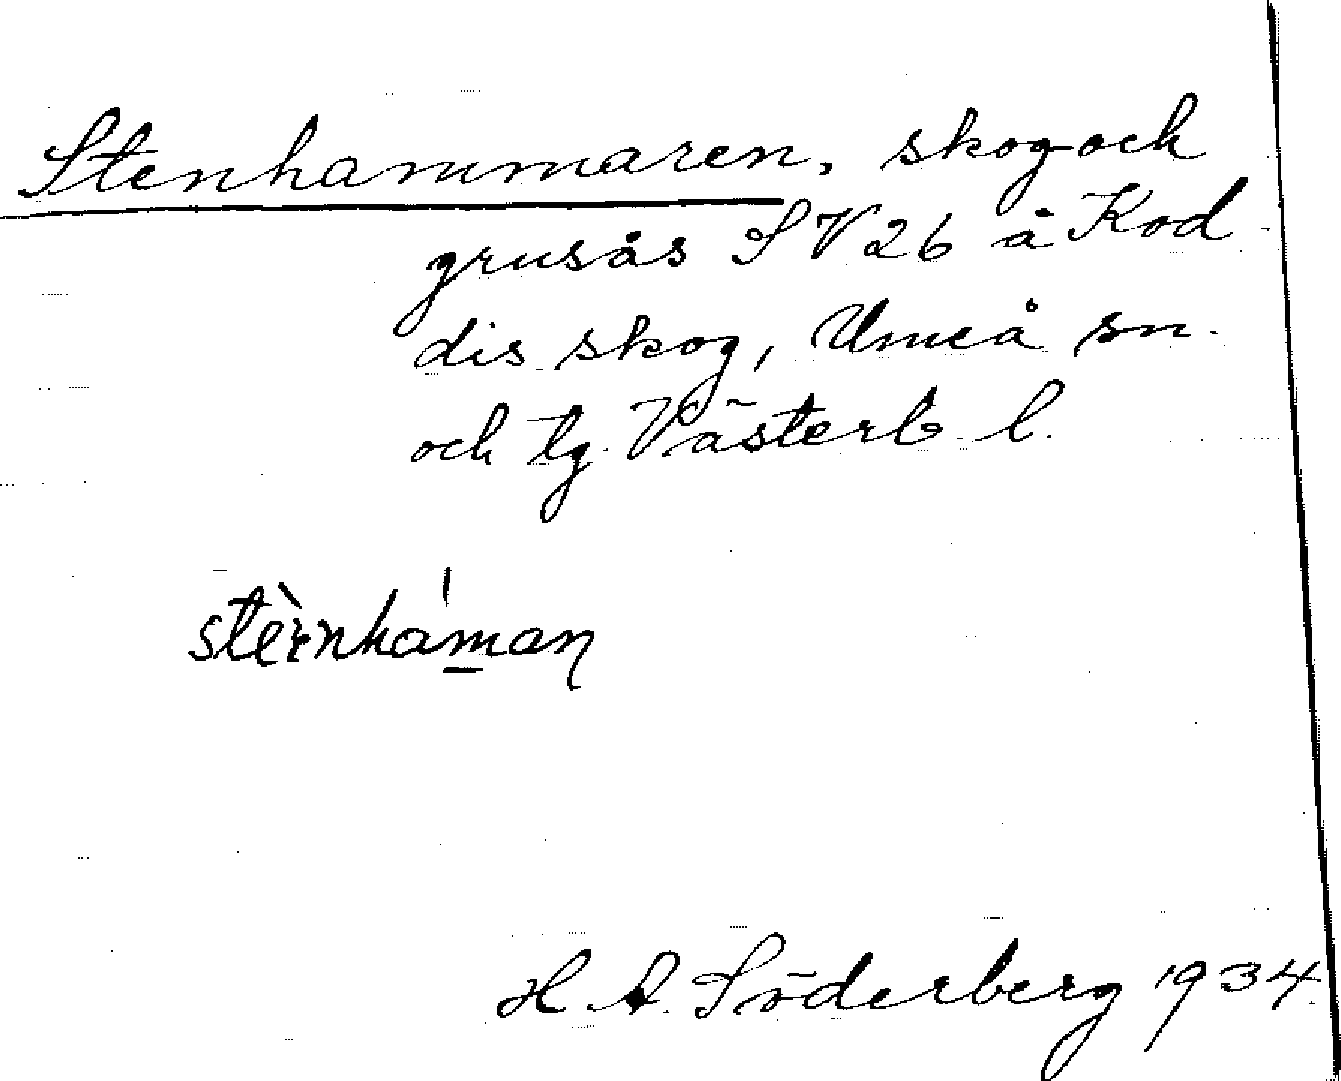 Stenhammaren, skog- och
grusås SV 26 å Kod-
dis skog, Umeå sn.
och tg. Västerb. l.
H. A. Söderberg 1934